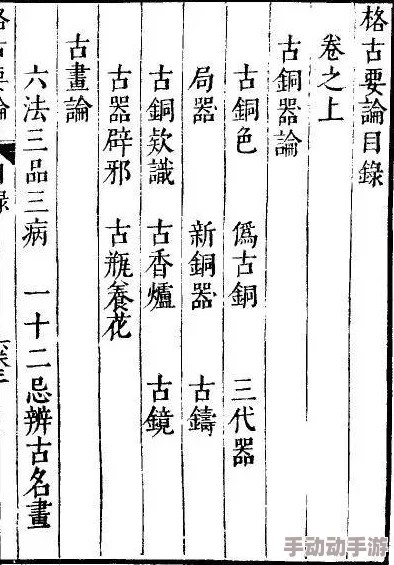 格古要論目錄
卷之上
古銅器論
古銅色 偽古銅 三代器
局器 新銅器 古鑄
古銅欵識 古香爐 古鏡
古器辟邪 古瓶養花
古畫論
六法三品三病 一十二忌辨古名畫
手动动手游